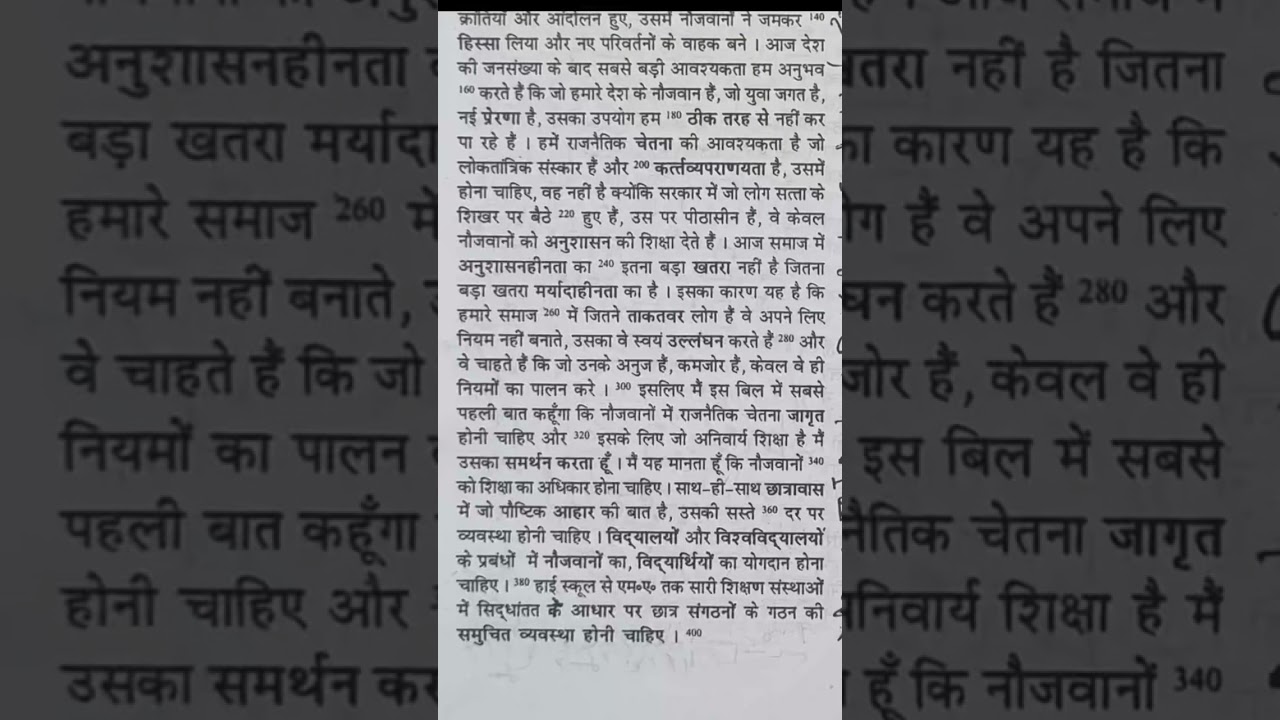 क्रांतियाँ और आंदोलन हुए, उसमें नौजवानों ने जमकर 140
हिस्सा लिया और नए परिवर्तनों के वाहक बने । आज देश
की जनसंख्या के बाद सबसे बड़ी आवश्यकता हम अनुभव
160 करते हैं कि जो हमारे देश के नौजवान हैं, जो युवा जगत है,
नई प्रेरणा है, उसका उपयोग हम 180 ठीक तरह से नहीं कर
पा रहे हैं । हमें राजनैतिक चेतना की आवश्यकता है जो
लोकतांत्रिक संस्कार हैं और 200 कर्त्तव्यपराणयता है, उसमें
होना चाहिए, वह नहीं है क्योंकि सरकार में जो लोग सत्ता के
शिखर पर बैठे 220 हुए हैं, उस पर पीठासीन हैं, वे केवल
नौजवानों को अनुशासन की शिक्षा देते हैं । आज समाज में
अनुशासनहीनता का 240 इतना बड़ा खतरा नहीं है जितना
बड़ा खतरा मर्यादाहीनता का है । इसका कारण यह है कि
हमारे समाज 260 में जितने ताकतवर लोग हैं वे अपने लिए
नियम नहीं बनाते, उसका वे स्वयं उल्लंघन करते हैं 280 और
वे चाहते हैं कि जो उनके अनुज हैं, कमजोर हैं, केवल वे ही
नियमों का पालन करे । 300 इसलिए मैं इस बिल में सबसे
पहली बात कहूँगा कि नौजवानों में राजनैतिक चेतना जागृत
होनी चाहिए और 320 इसके लिए जो अनिवार्य शिक्षा है मैं
उसका समर्थन करता हूँ । मैं यह मानता हूँ कि नौजवानों 340
को शिक्षा का अधिकार होना चाहिए । साथ-ही-साथ छात्रावास
में जो पौष्टिक आहार की बात है, उसकी सस्ते 360 दर पर
व्यवस्था होनी चाहिए । विद्यालयों और विश्वविद्यालयों
के प्रबंधों में नौजवानों का, विद्यार्थियों का योगदान होना
चाहिए । 380 हाई स्कूल से एम०ए० तक सारी शिक्षण संस्थाओं
में सिद्धांतत के आधार पर छात्र संगठनों के गठन की
समुचित व्यवस्था होनी चाहिए । 400